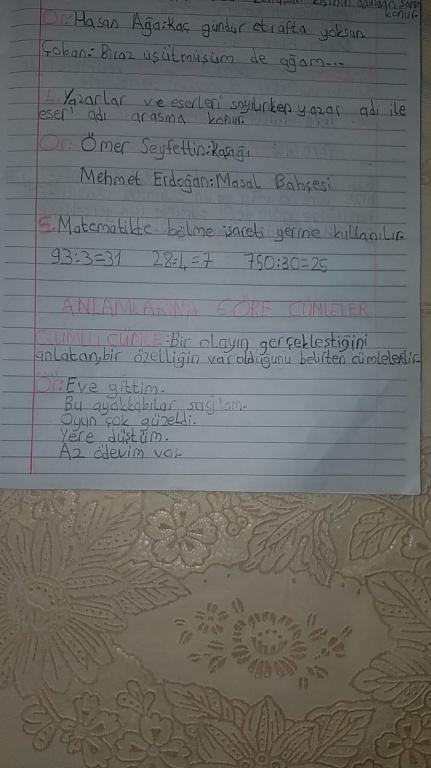 kişinin adından sonra
konur.
Ör: Hasan Ağa: Kaç gündür etrafta yoksun.
Çoban: Biraz üşütmüşüm de ağam...
4. Yazarlar ve eserleri sayılırken yazar adı ile
eser adı arasına konur.
Ör: Ömer Seyfettin: Kaşağı
Mehmet Erdoğan: Masal Bahçesi
5. Matematikte bölme işareti yerine kullanılır.
93:3=31 28:4=7 750:30=25
ANLAMLARINA GÖRE CÜMLELER
OLUMLU CÜMLE: Bir olayın gerçekleştiğini
anlatan, bir özelliğin var olduğunu belirten cümlelerdir.
Ör: Eve gittim.
Bu ayakkabılar sağlam.
Oyun çok güzeldi.
Yere düştüm.
Az ödevim var.